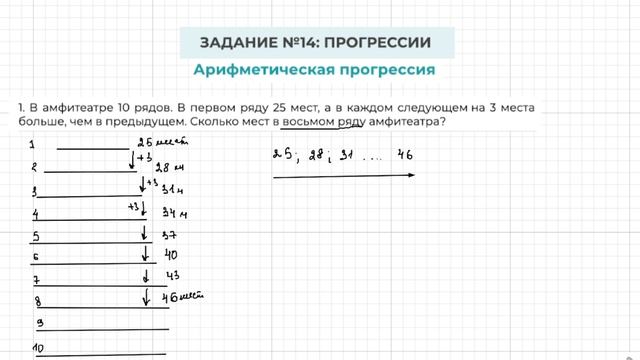 ЗАДАНИЕ №14: ПРОГРЕССИИ
Арифметическая прогрессия
1. В амфитеатре 10 рядов. В первом ряду 25 мест, а в каждом следующем на 3 места
больше, чем в предыдущем. Сколько мест в восьмом ряду амфитеатра?
1 25 мест
+3
2 28 м
+3
3 31 м
+3
4 34 м
5 37
6 40
7 43
8 46 мест
9
10
25; 28; 31 .... 46